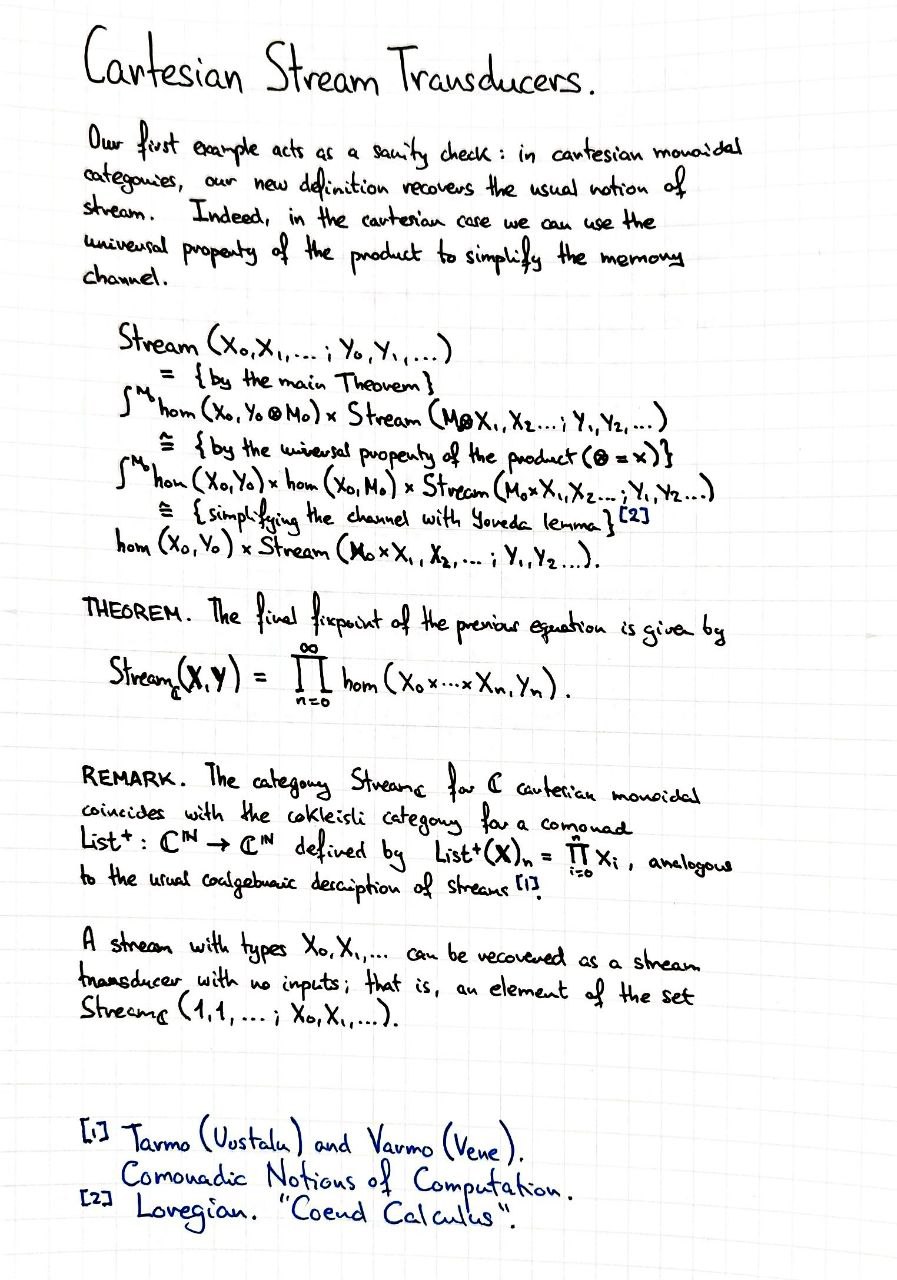 Cartesian Stream Transducers.
Our first example acts as a sanity check: in cartesian monoidal
categories, our new definition recovers the usual notion of
stream. Indeed, in the cartesian case we can use the
universal property of the product to simplify the memory
channel.
Stream (X₀, X₁, ... ; Y₀, Y₁, ...)
= {by the main Theorem}
∫^M₀ hom (X₀, Y₀ ⊗ M₀) × Stream (M⊗X₁, X₂ ... ; Y₁, Y₂, ...)
≅ {by the universal property of the product (⊗ = ×)}
∫^M₀ hom (X₀, Y₀) × hom (X₀, M₀) × Stream (M₀×X₁, X₂ ... ; Y₁, Y₂ ...)
≅ {simplifying the channel with Yoneda lemma} [2]
hom (X₀, Y₀) × Stream (X₀ × X₁, X₂, ... ; Y₁, Y₂ ...).
THEOREM. The final fixpoint of the previous equation is given by
Stream_ℂ(X, Y) = ∏_{n=0}^∞ hom (X₀ × ... × Xn, Yn).
REMARK. The category Stream_ℂ for ℂ cartesian monoidal
coincides with the cokleisli category for a comonad
List⁺ : ℂ^ℕ → ℂ^ℕ defined by List⁺(X)n = ∏_{i=0}^n Xi, analogous
to the usual coalgebraic description of streams [1].
A stream with types X₀, X₁, ... can be recovered as a stream
transducer with no inputs; that is, an element of the set
Stream_ℂ (1, 1, ... ; X₀, X₁, ...).
[1] Tarmo (Uustalu) and Varmo (Vene).
Comonadic Notions of Computation.
[2] Loregian. "Coend Calculus".